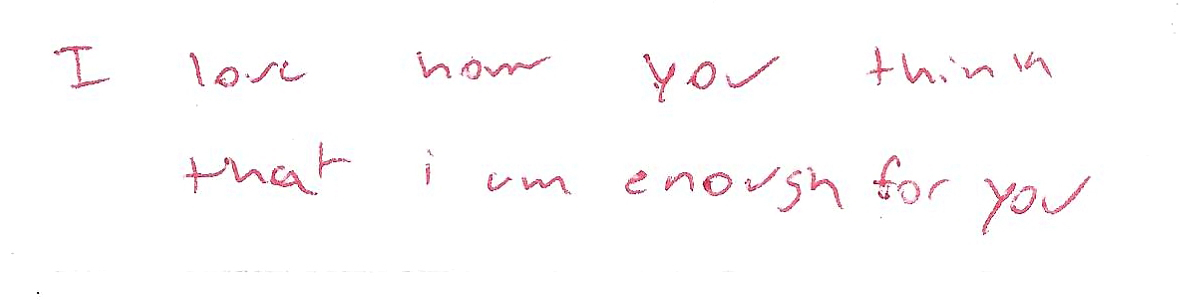 I love how you think
that i am enough for you